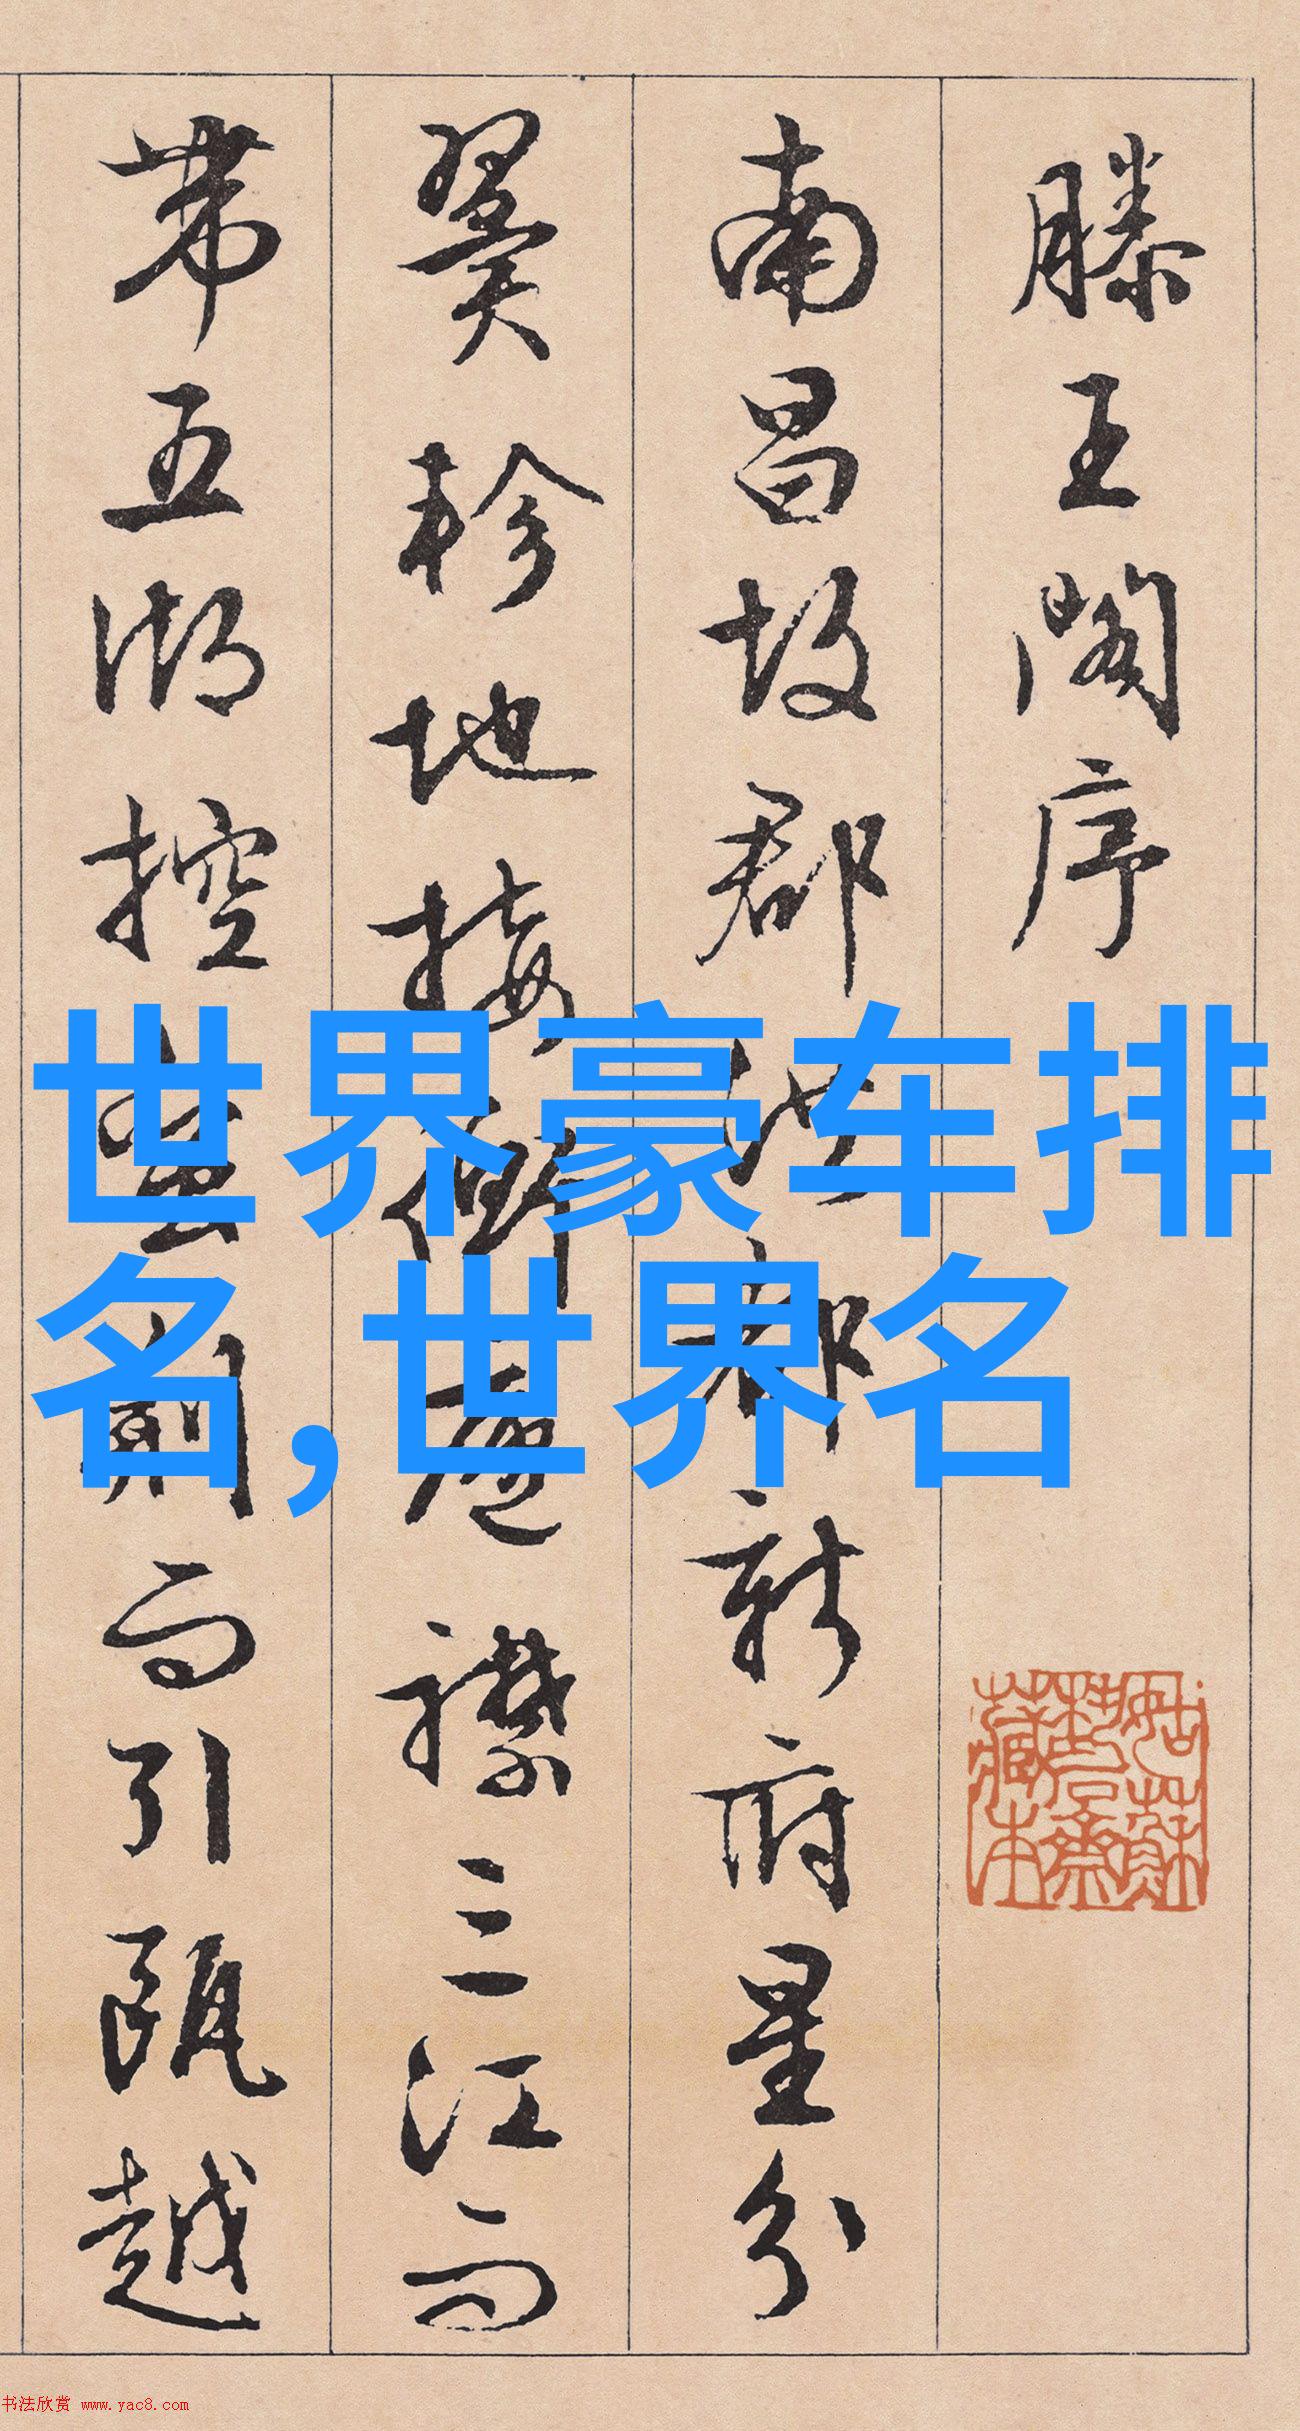 滕王阁序
南昌故郡洪都新府星分
翼轸地接衡庐襟三江而
带五湖控蛮荆而引瓯越
世界豪车排
名,世界名
姑苏
斋
藏本
书法欣赏 www.yac8.com